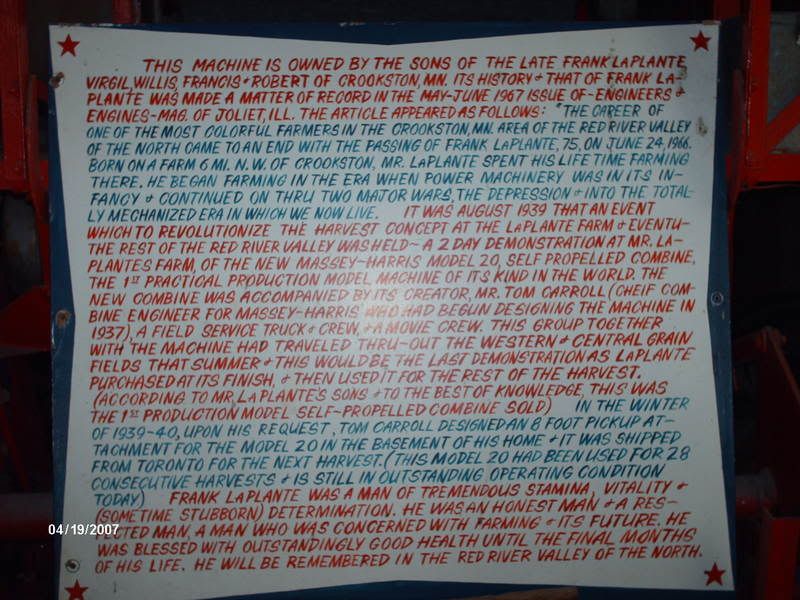 THIS MACHINE IS OWNED BY THE SONS OF THE LATE FRANK LAPLANTE
VIRGIL, WILLIS, FRANCIS & ROBERT OF CROOKSTON, MN. ITS HISTORY & THAT OF FRANK LA-
PLANTE WAS MADE A MATTER OF RECORD IN THE MAY-JUNE 1967 ISSUE OF-ENGINEERS &
ENGINES-MAG. OF JOLIET, ILL. THE ARTICLE APPEARED AS FOLLOWS: "THE CAREER OF
ONE OF THE MOST COLORFUL FARMERS IN THE CROOKSTON, MN. AREA OF THE RED RIVER VALLEY
OF THE NORTH CAME TO AN END WITH THE PASSING OF FRANK LAPLANTE, 75, ON JUNE 24, 1966.
BORN ON A FARM 6 MI. N.W. OF CROOKSTON, MR. LAPLANTE SPENT HIS LIFE TIME FARMING
THERE. HE BEGAN FARMING IN THE ERA WHEN POWER MACHINERY WAS IN ITS IN-
FANCY & CONTINUED ON THRU TWO MATOR WARS, THE DEPRESSION & INTO THE TOTAL-
LY MECHANIZED ERA IN WHICH WE NOW LIVE. IT WAS AUGUST 1939 THAT AN EVENT
WHICH TO REVOLUTIONIZE THE HARVEST CONCEPT AT THE LAPLANTE FARM & EVENTU-
THE REST OF THE RED RIVER VALLEY WAS HELD~ A 2 DAY DEMONSTRATION AT MR. LA-
PLANTES FARM, OF THE NEW MASSEY-HARRIS MODEL 20, SELF PROPELLED COMBINE,
THE 1ST PRACTICAL PRODUCTION MODEL MACHINE OF ITS KIND IN THE WORLD. THE
NEW COMBINE WAS ACCOMPANIED BY ITS CREATOR, MR. TOM CARROLL (CHEIF COM-
BINE ENGINEER FOR MASSEY-HARRIS WHO HAD BEGUN DESIGNING THE MACHINE IN
1937), A FIELD SERVICE TRUCK & CREW, & A MOVIE CREW. THIS GROUP TOGETHER
WITH THE MACHINE HAD TRAVELED THRU-OUT THE WESTERN & CENTRAL GRAIN
FIELDS THAT SUMMER & THIS WOULD BE THE LAST DEMONSTRATION AS LAPLANTE
PURCHASED AT ITS FINISH, & THEN USED IT FOR THE REST OF THE HARVEST.
(ACCORDING TO MR. LAPLANTE'S SONS & TO THE BEST OF KNOWLEDGE, THIS WAS
THE 1ST PRODUCTION MODEL SELF-PROPELLED COMBINE SOLD) IN THE WINTER
OF 1939-40, UPON HIS REQUEST, TOM CARROLL DESIGNED AN 8 FOOT PICKUP AT-
TACHMENT FOR THE MODEL 20 IN THE BASEMENT OF HIS HOME & IT WAS SHIPPED
FROM TORONTO FOR THE NEXT HARVEST. (THIS MODEL 20 HAD BEEN USED FOR 28
CONSECUTIVE HARVESTS & IS STILL IN OUTSTANDING OPERATING CONDITION
TODAY) FRANK LAPLANTE WAS A MAN OF TREMENDOUS STAMINA, VITALITY &
(SOMETIME STUBBORN) DETERMINATION. HE WAS AN HONEST MAN & A RES-
PECTED MAN, A MAN WHO WAS CONCERNED WITH FARMING & ITS FUTURE. HE
WAS BLESSED WITH OUTSTANDINGLY GOOD HEALTH UNTIL THE FINAL MONTHS
OF HIS LIFE. HE WILL BE REMEMBERED IN THE RED RIVER VALLEY OF THE NORTH.
04/19/2007